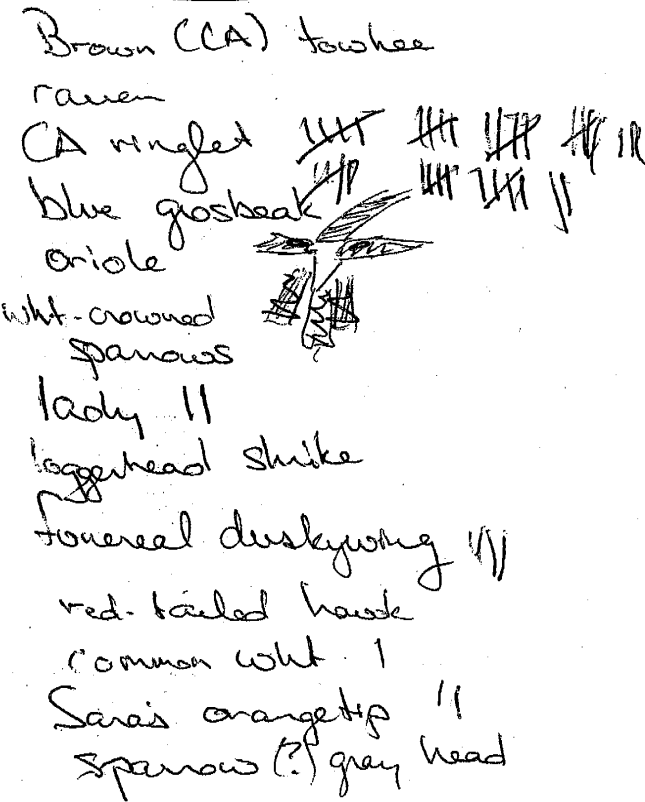 Brown (CA) towhee
raven
CA ringlet
blue grosbeak
oriole
wht-crowned
sparrows
lady II
loggerhead shrike
funereal duskywing III
red-tailed hawk
common wht. 1
Sara's orangetip II
sparrow (?) gray head